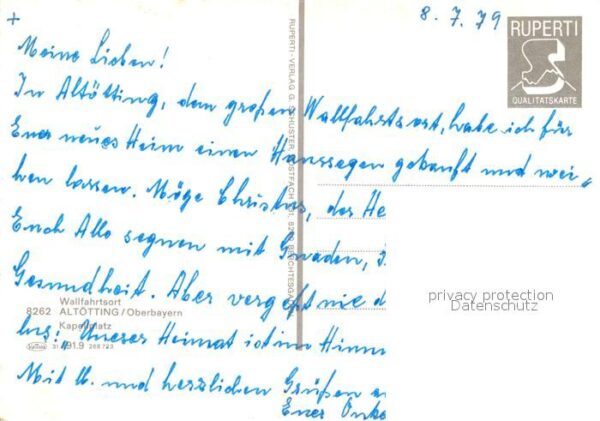 +
8. 7. 79
RUPERTI
QUALITÄTSKARTE
Meine Lieben!
In Altötting, dem großen Wallfahrtsort, habe ich für
Euer neues Heim einen Haussegen gekauft und wei-
hen lassen. Möge Christus, der He
Euch Alle segnen mit Gnaden,
Gesundheit. Aber vergeßt nie d
"Unserer Heimat ist im Himm
Mit lb. und herzlichen Grüßen
Euer Onke
RUPERTI-VERLAG G. SCHUSTER, POSTFACH
Wallfahrtsort
8262 ALTÖTTING/Oberbayern
Kapellplatz
privacy protection
Datenschutz